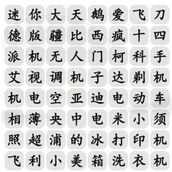 迷你大天鹅爱飞刀
德版疆比西疯十四
派机无人门柯科手
艾视调机子达剃机
机电空亚迪电动车
相薄央中水米小须
照超浦的冰打印机
飞利小美箱洗衣机